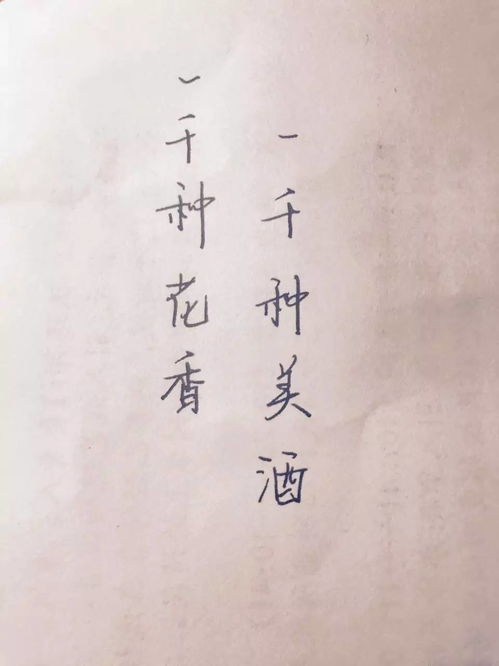 一千种美酒
一千种花香